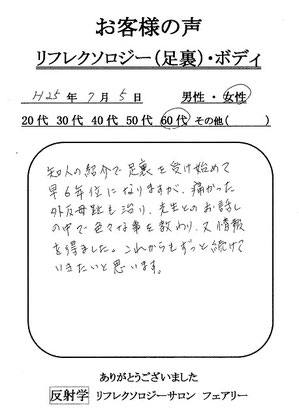 お客様の声
リフレクソロジー(足裏)・ボディ
H25年7月5日 男性・女性
20代 30代 40代 50代 60代 その他( )
知人の紹介で足裏を受け始めて
早6年位になりますが、痛かった
外反母趾も治り、先生とのお話し
の中で色々な事を教わり、又情報
を得ました。これからもずっと続けて
いきたいと思います。
ありがとうございました
反射学 リフレクソロジーサロン フェアリー